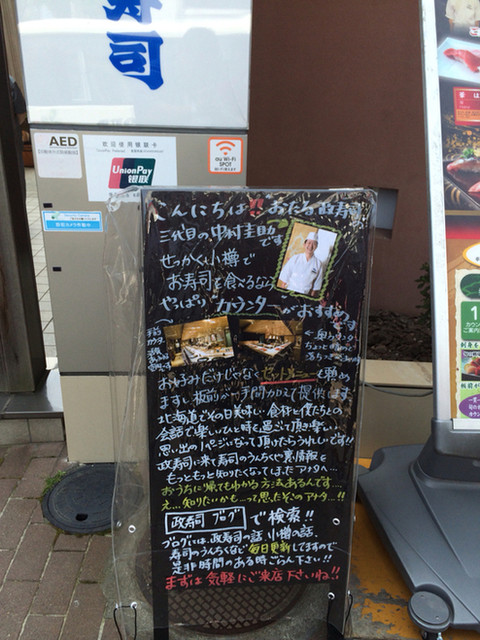 寿司
AED
欢迎使用银联卡
UnionPay
银联
au Wi-Fi
SPOT
こんにちは!!おたる政寿司
三代目の中村圭助
です
せっかく小樽で
お寿司を食べるなら
やっぱり"カウンター"がおすすめです
お好みだけじゃなくセットメニューも頼め
ますし板前が一手間かえて提供します
北海道でその日美味しい食材と僕たちとの
会話で楽しいひと時を過ごして頂き楽しい
思い出の1ページになって頂けたらうれしいです!!
政寿司に来て寿司のうんちくや裏情報を
もっともっと知りたくなってしまったアナタへ…
おうちに帰ってもわかる方法あるんです…
え…知りたいかも…って思ったそこのアナタ…!!
政寿司 ブログ で検索!!
ブログには、政寿司の話、小樽の話、
寿司のうんちくなど毎日更新してますので
是非時間のある時ごらん下さい!!
まずは気軽にご来店下さいね!!